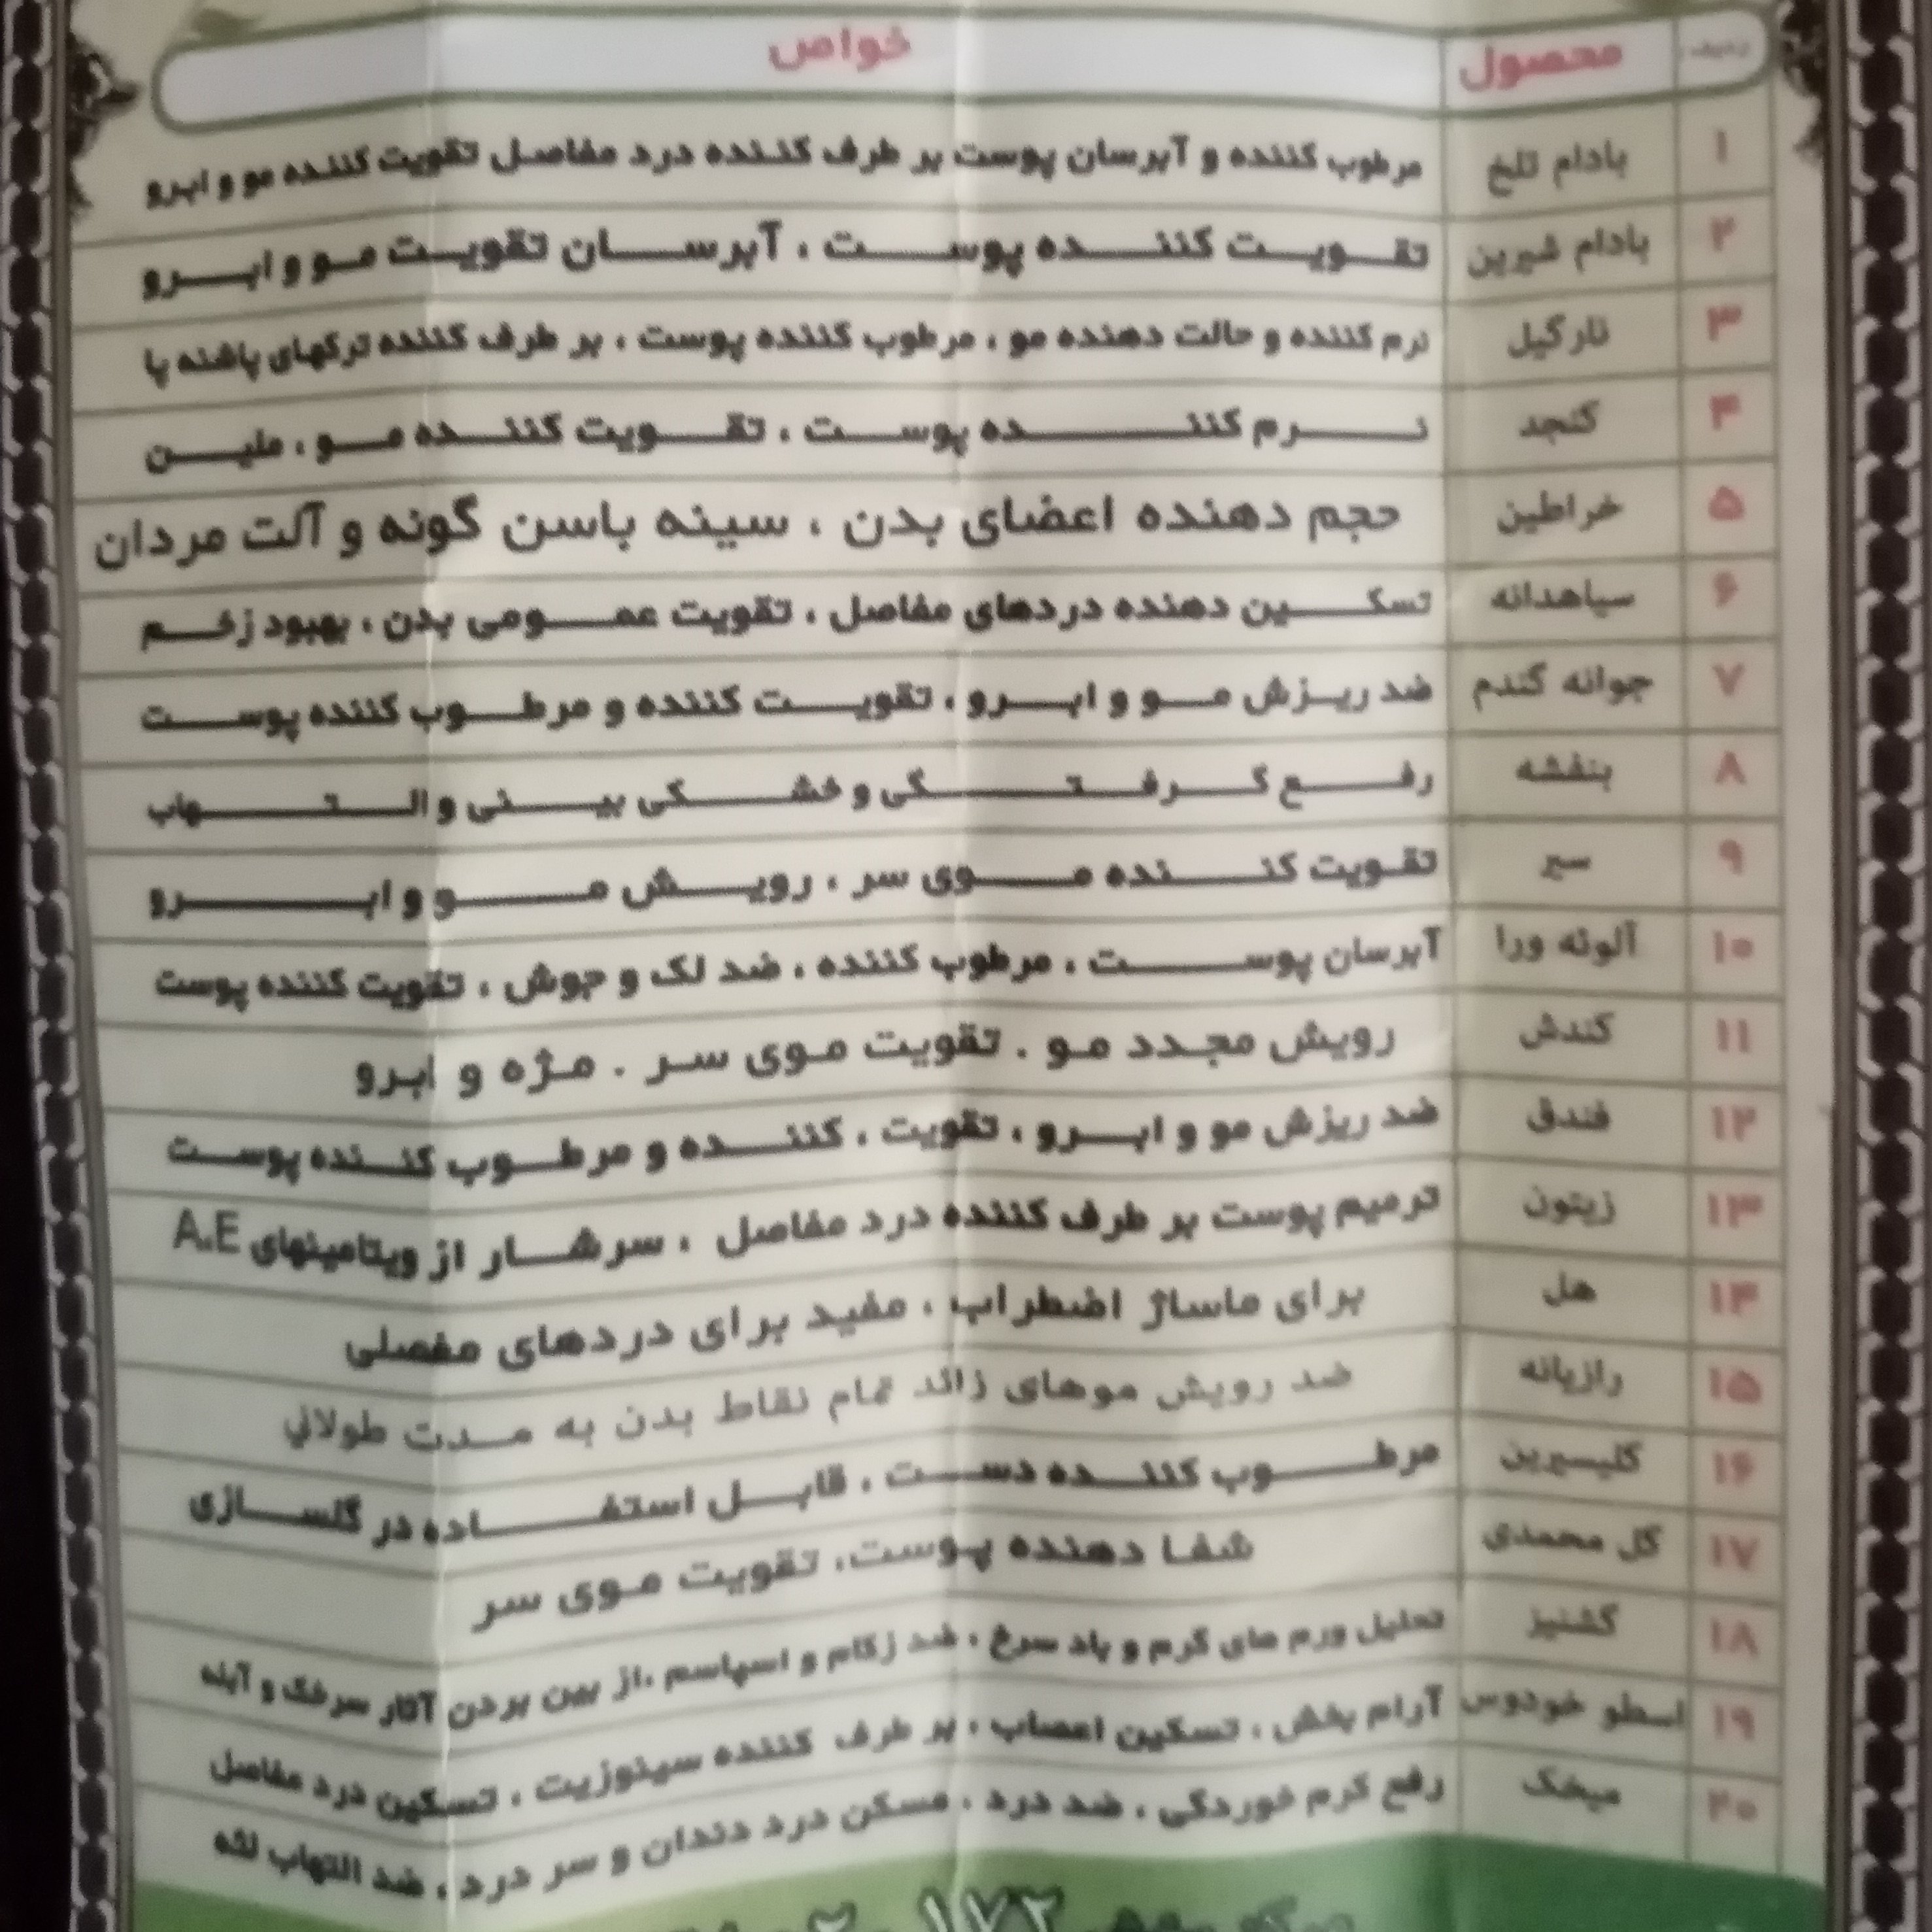 ردیف محصول خواص
۱ بادام تلخ مرطوب کننده و آبرسان پوست بر طرف کننده درد مفاصل تقویت کننده مو و ابرو
۲ بادام شیرین تقویت کننده پوست ، آبرسان تقویت مو و ابرو
۳ نارگیل نرم کننده و حالت دهنده مو ، مرطوب کننده پوست ، بر طرف کننده ترکهای پاشنه پا
۴ کنجد نرم کننده پوست ، تقویت کننده مو ، ملین
۵ خراطین حجم دهنده اعضای بدن ، سینه باسن گونه و آلت مردان
۶ سیاهدانه تسکین دهنده دردهای مفاصل ، تقویت عمومی بدن ، بهبود زخم
۷ جوانه گندم ضد ریزش مو و ابرو ، تقویت کننده و مرطوب کننده پوست
۸ بنفشه رفع گرفتگی و خشکی بینی و التهاب
۹ سیر تقویت کننده موی سر ، رویش مو و ابرو
۱۰ آلوئه ورا آبرسان پوست ، مرطوب کننده ، ضد لک و جوش ، تقویت کننده پوست
۱۱ کندش رویش مجدد مو . تقویت موی سر . مژه و ابرو
۱۲ فندق ضد ریزش مو و ابرو ، تقویت ، کننده و مرطوب کننده پوست
۱۳ زیتون ترمیم پوست بر طرف کننده درد مفاصل ، سرشار از ویتامینهای A.E
۱۴ هل برای ماساژ اضطراب ، مفید برای دردهای مفصلی
۱۵ رازیانه ضد رویش موهای زائد تمام نقاط بدن به مدت طولانی
۱۶ گلیسیرین مرطوب کننده دست ، قابل استفاده در گلسازی
۱۷ گل محمدی شفا دهنده پوست، تقویت موی سر
۱۸ گشنیز تحلیل ورم های گرم و باد سرخ ، ضد زکام و اسپاسم ،از بین بردن آثار سرخک و آبله
۱۹ اسطو خودوس آرام بخش ، تسکین اعصاب ، بر طرف کننده سینوزیت ، تسکین درد مفاصل
۲۰ میخک رفع کرم خوردگی ، ضد درد ، مسکن درد دندان و سر درد ، ضد التهاب لثه